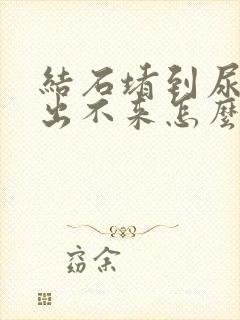 結石堵到尿
出不来怎麼
窈余